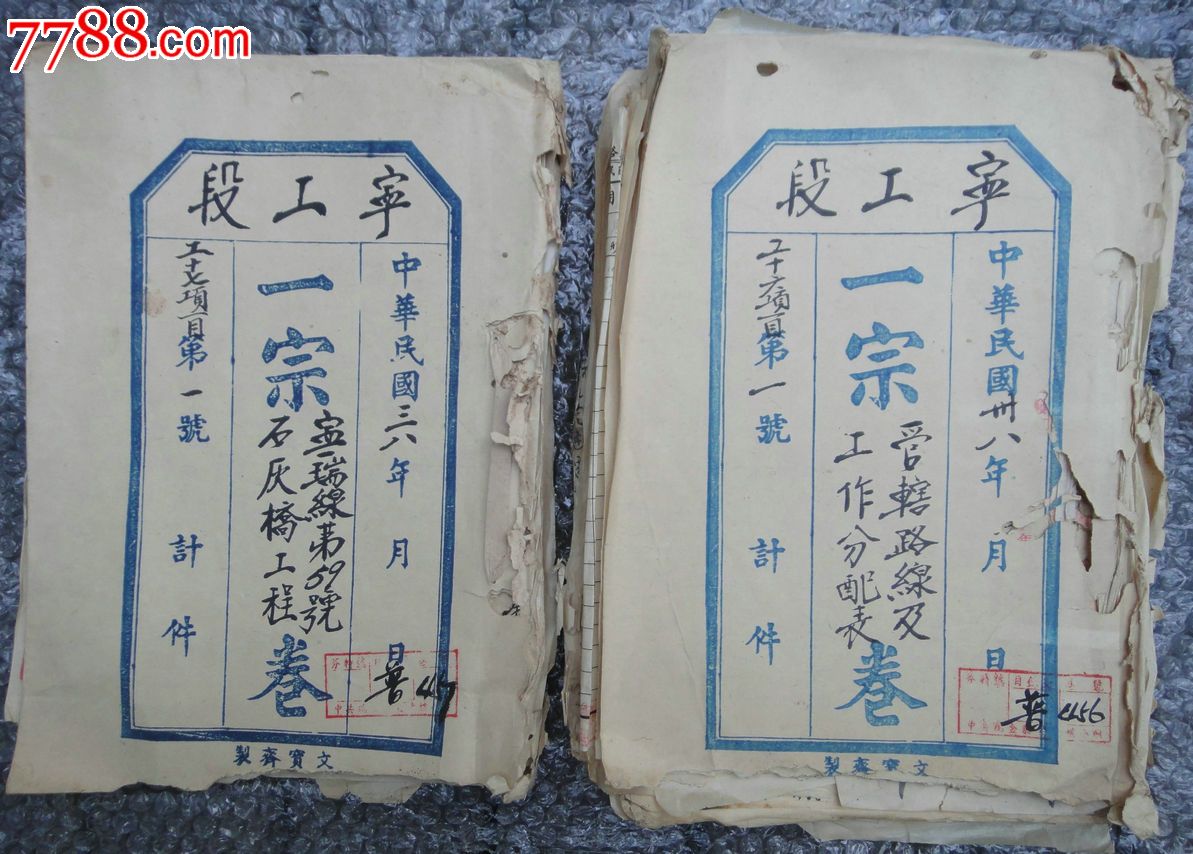 7788.com
寕工段
中華民國三八年 月 日
一宗
寕瑞線第59號
石灰橋工程
卷
工十七項一目第一號 計 件
普
文寶齋製
寕工段
中華民國卅八年 月 日
一宗
管轄路線及
工作分配表
卷
工十六項一目第一號 計 件
普 4456
文寶齋製